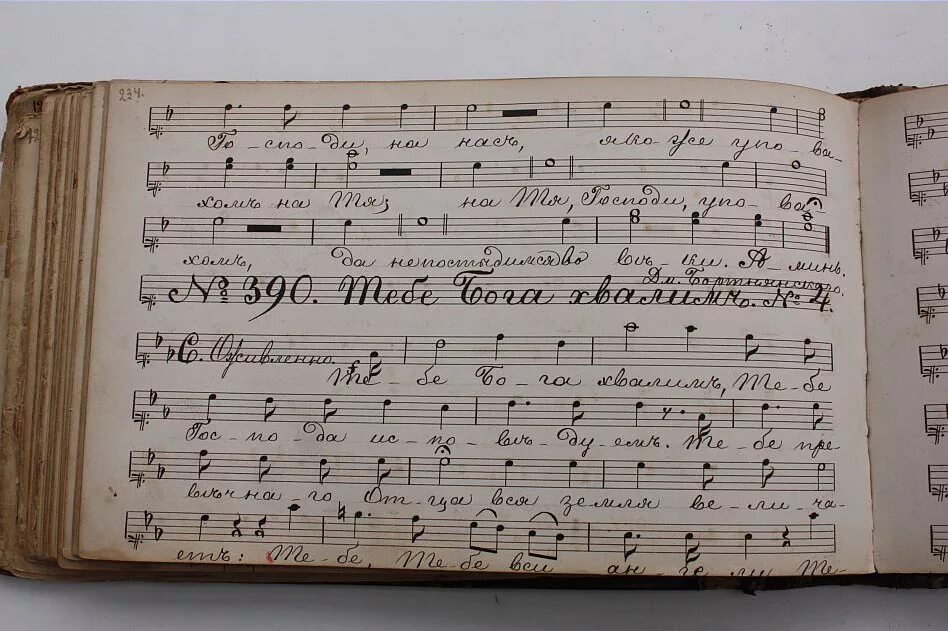 234.
Го-спо-ди, на насъ, яко-же упо-ва-
хомъ на Тя; на Тя, Господи, упо-ва-
хомъ, да непостыдимся во вѣ-ки. А-минь.
Дм. Бортнянскаго.
№ 390. Тебе Бога хвалимъ. № 4.
С. Оживленно.
Те-бе Бо-га хвалимъ, Те-бе
Гос-по-да ис-по-вѣ-ду-емъ. Те-бе пре-
вѣчна-го От-ца вся земля ве-ли-ча-
етъ: Те-бе, Те-бе вси ан-ге-ли Те-